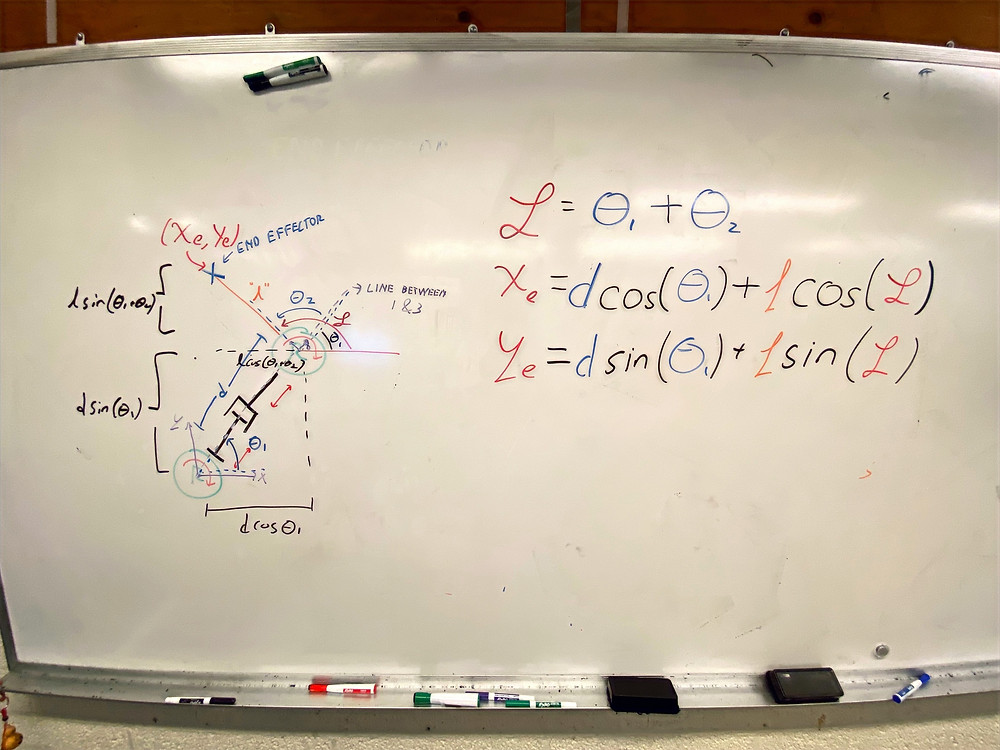 (Xe, Ye)
END EFFECTOR
l sin(θ₁+θ₂)
"l"
θ₂
LINE BETWEEN
1&3
L
θ₁
l cos(θ₁+θ₂)
d
d sin(θ₁)
Y
θ₁
X
d cos θ₁
L = θ₁ + θ₂
Xe = d cos(θ₁) + l cos(L)
Ye = d sin(θ₁) + l sin(L)